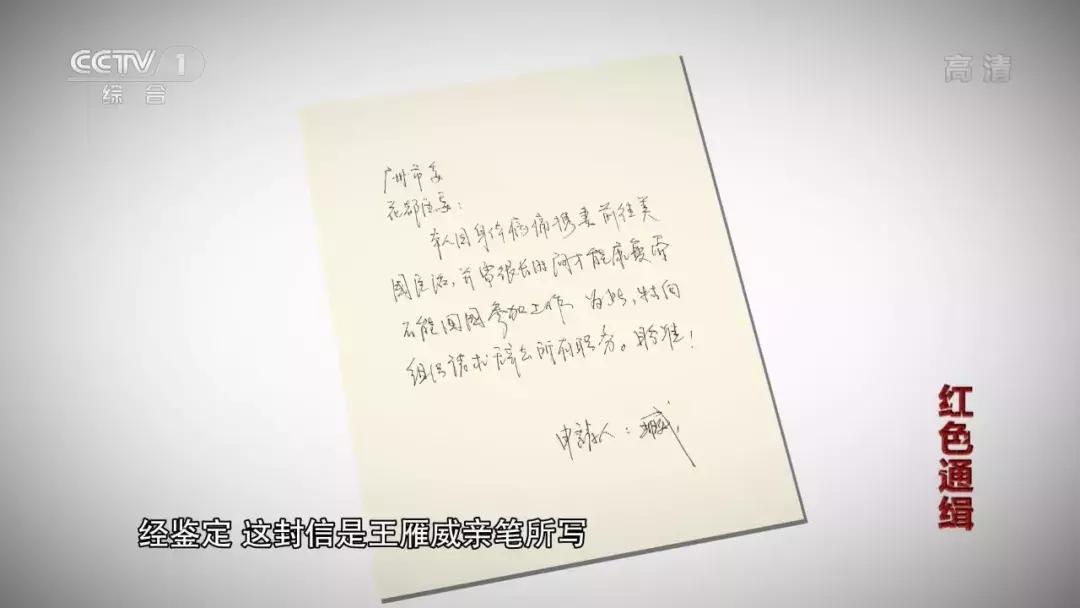 CCTV 1
综合
高清
广州市委
花都区委：
本人因身体病痛携妻前往美
国医治，并需很长时间才能康复而
不能回国参加工作，为此，特向
组织请求辞去所有职务。盼准！
申请人：
红色通缉
经鉴定 这封信是王雁威亲笔所写